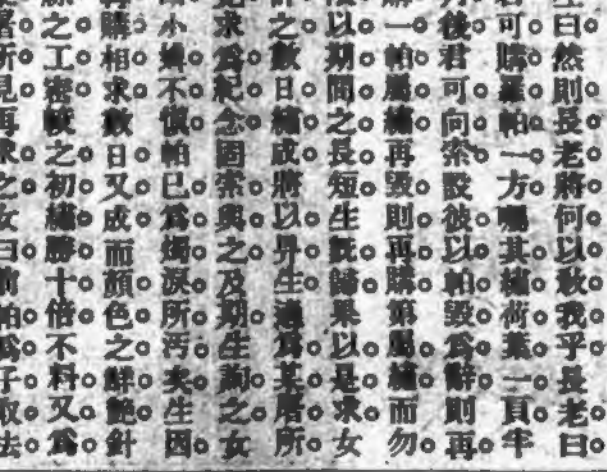 曰然則長老將何以敎我乎長老曰
君可購羅帕一方囑其繡荷葉一頁半
月後君可向索設彼以帕毀爲辭則再
購一帕屬繡再毀則再購第屬繡而勿
限以期間之長短生旣歸果以是求女
許之數日繡成將以畀生適爲某屠所
見求爲紀念固索與之及期生詢之女
小婢不愼帕已爲燭淚所污矣生因
再購相求數日又成而顏色之鮮艶針
線之工密較之初繡勝十倍不料又爲
屠所見再求之女曰前帕爲子取去